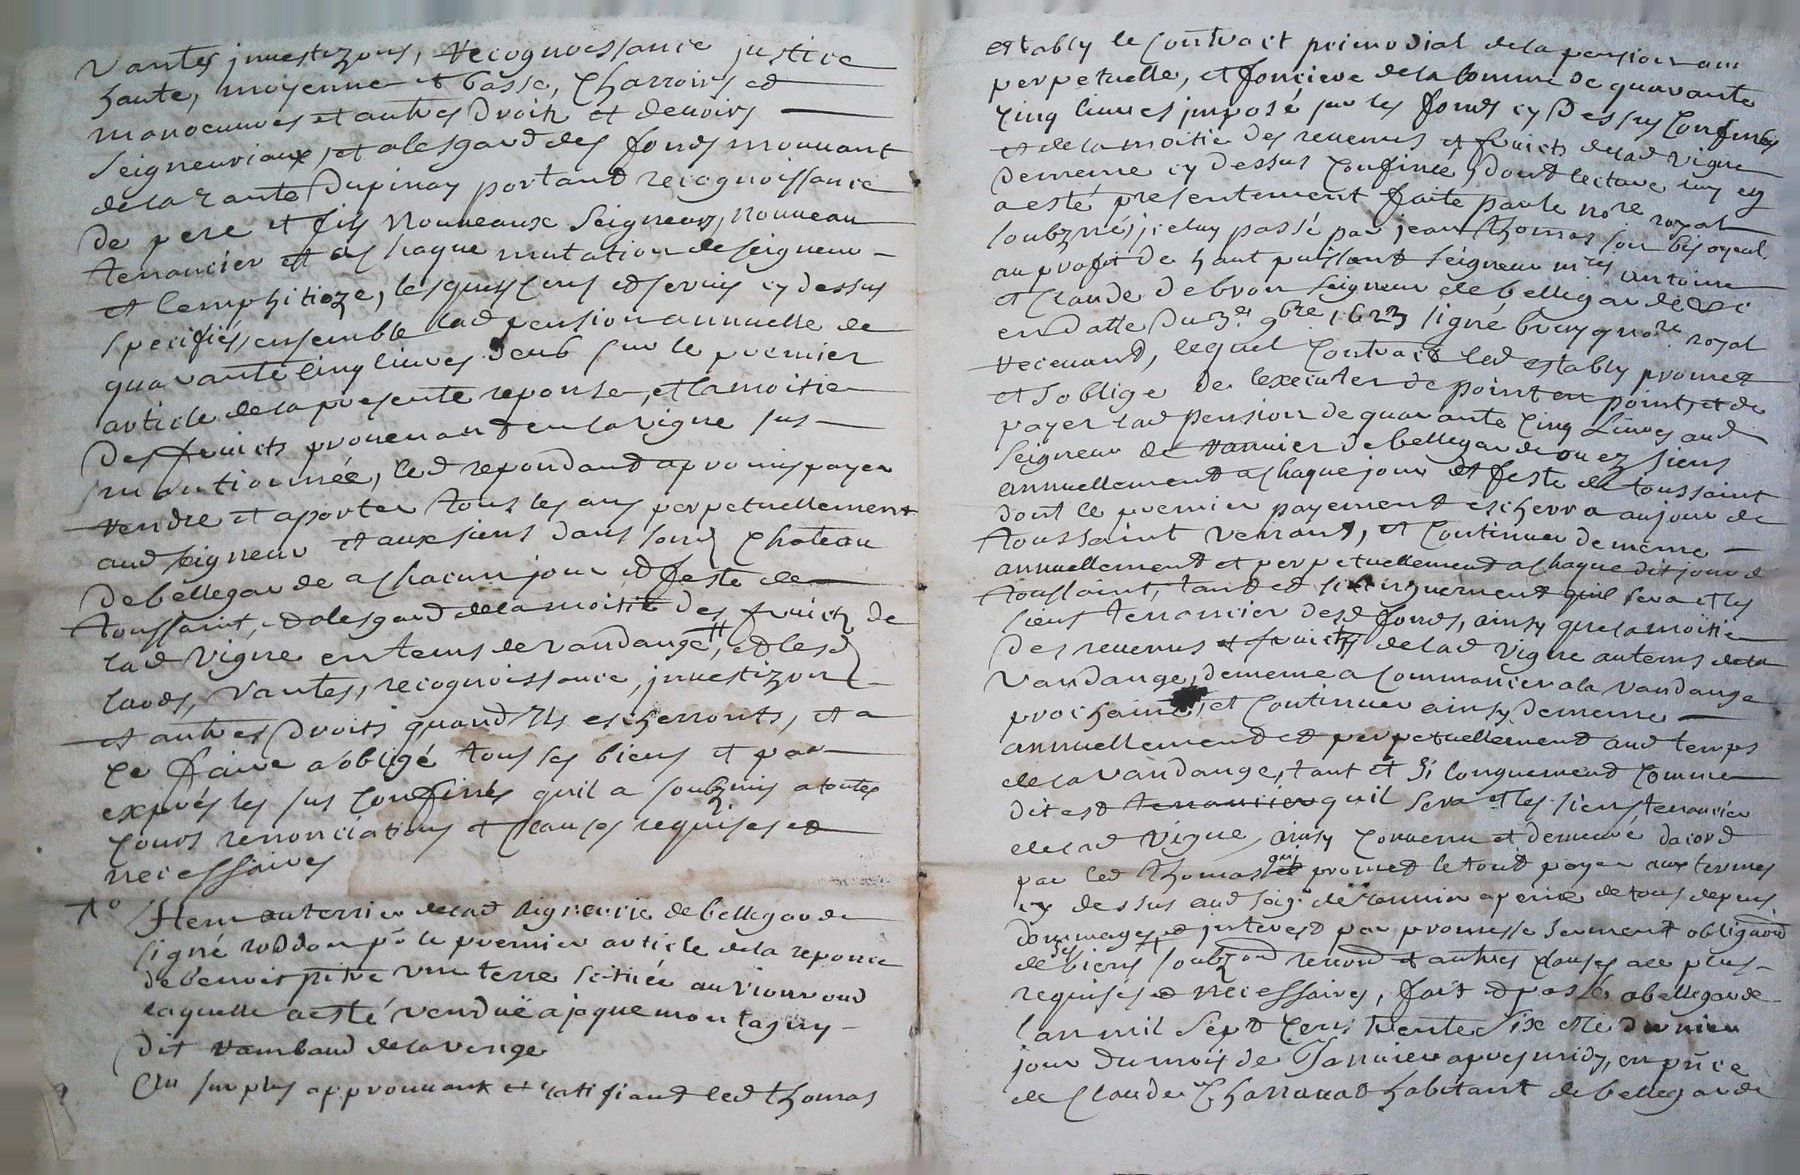 vantes jnvestizons, recognoissance justice
haute, moyenne et basse, charrois et
manoeuvres et autres droits et devoirs
seigneuriaux, et alesgard des fonds mouvant
de la rante Dupinay portant recognoissance
de pere et fils nouveaux seigneurs, nouveau
tenancier et a chaque mutation de seigneur
et lemphitioze, lesquels cens et servis cy dessus
specifiés, ensemble lad pension annuelle de
quavante cinq livres deub sur le premier
article de la presente reponse, et la moitie
des fruicts provenant en la vigne sus
mantionnée, led repondant a promis payer
rendre et aporter tous les ans perpetuellement
aud seigneur et aux siens dans sond chateau
de bellegarde a chacun jour et feste de
toussaint, et alesgard de la moitie des fruicts de
lad vigne en tems de vandange, et lesd
laods, vantes, recognoissance, jnvestizons
et autres droits quand ils escherronts, et a
ce faire a obligé tous ses biens et par
exprés les sus confinés quil a soubzmis a toutes
cours renonciations et clauses requises et
necessaires
Item au terrier de lad signeurie de bellegarde
signé roddon pr le premier article de la reponce
de benoist pitre une terre scittée au
laquelle a esté vendue a jaque montagny
dit rambaud de la verge
Au surplus approuvant et ratifiand led thomas
estably le contract primodial de la pension an
perpetuelle, et fonciere de la somme de quarante
cinq livres jmposé sur les fonds cy dessus confinés
et de la moitie des revenus et fruicts de lad vigne
dememe cy dessus confinée, dont lecture luy en
a esté presentement faite par le nore royal
soubzné, jceluy passé par jean thomas son bisoyeul
au profit de haut puissant seigneur mres antoine
et Claude debron seigneur de bellegarde
en datte du 3e 9bre 1623 signé nore royal
recevant, lequel contract led estably promet
et soblige de lexecuter de point en point, et de
payer lad pension de quarante cinq livres aud
seigneur de vannier de bellegarde ou ez siens
annuellement a chaque jour et feste de toussaint
dont le premier payement escherra au jour de
toussaint venant, et continuer de meme
annuellement et perpetuellement a chaque dit jour de
toussaint, tant et si longuement quil sera et les
siens tenancier desd fonds, ainsy que la moitie
des revenus et fruicts de lad vigne au tems de la
vandange, de meme a commancer a la vandange
prochaine, et continuer ainsy de meme
annuellement et perpetuellement aud temps
de la vandange, tant et si longuement comme
dit est tenancier quil sera et les siens tenancier
de lad vigne, ainsy convenu et demeuré dacord
par led thomas qui promet le tout payer aux termes
cy dessus aud seigr de vannier a peine de tous depens
dommages et jnterest par promesse serment obligaõn
de ses biens soubzmõn renonõn et autres clauses a ce plus
requises et necessaires, fait et passé a bellegarde
lan mil sept cens trente six et le dernier
jour du mois de Janvier apres midy, en pñce
de Claude Charravat habitant de bellegarde